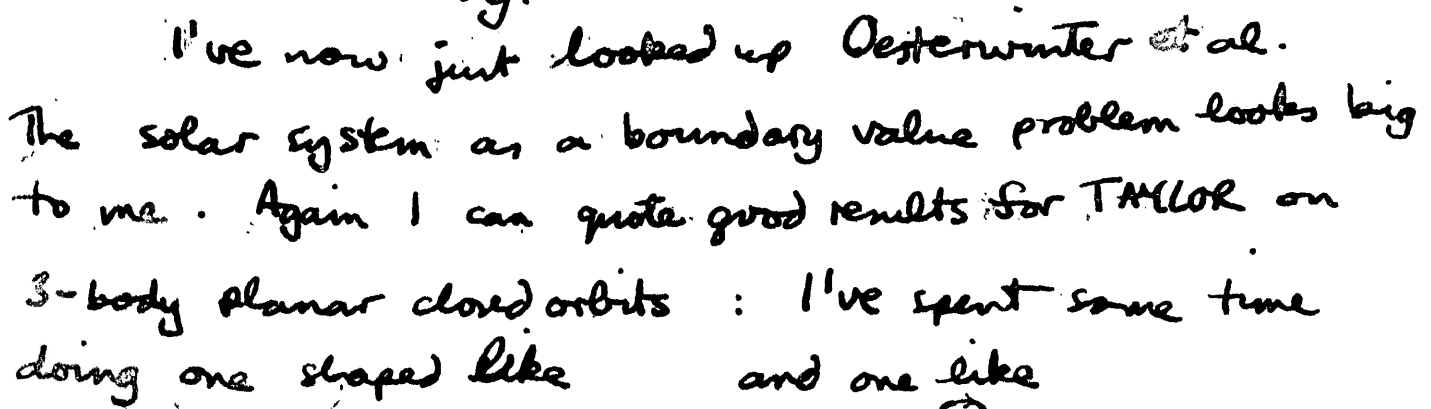 I've now just looked up Oesterwinter et al.
The solar system as a boundary value problem looks big
to me. Again I can quote good results for TAYLOR on
3-body planar closed orbits : I've spent some time
doing one shaped like and one like